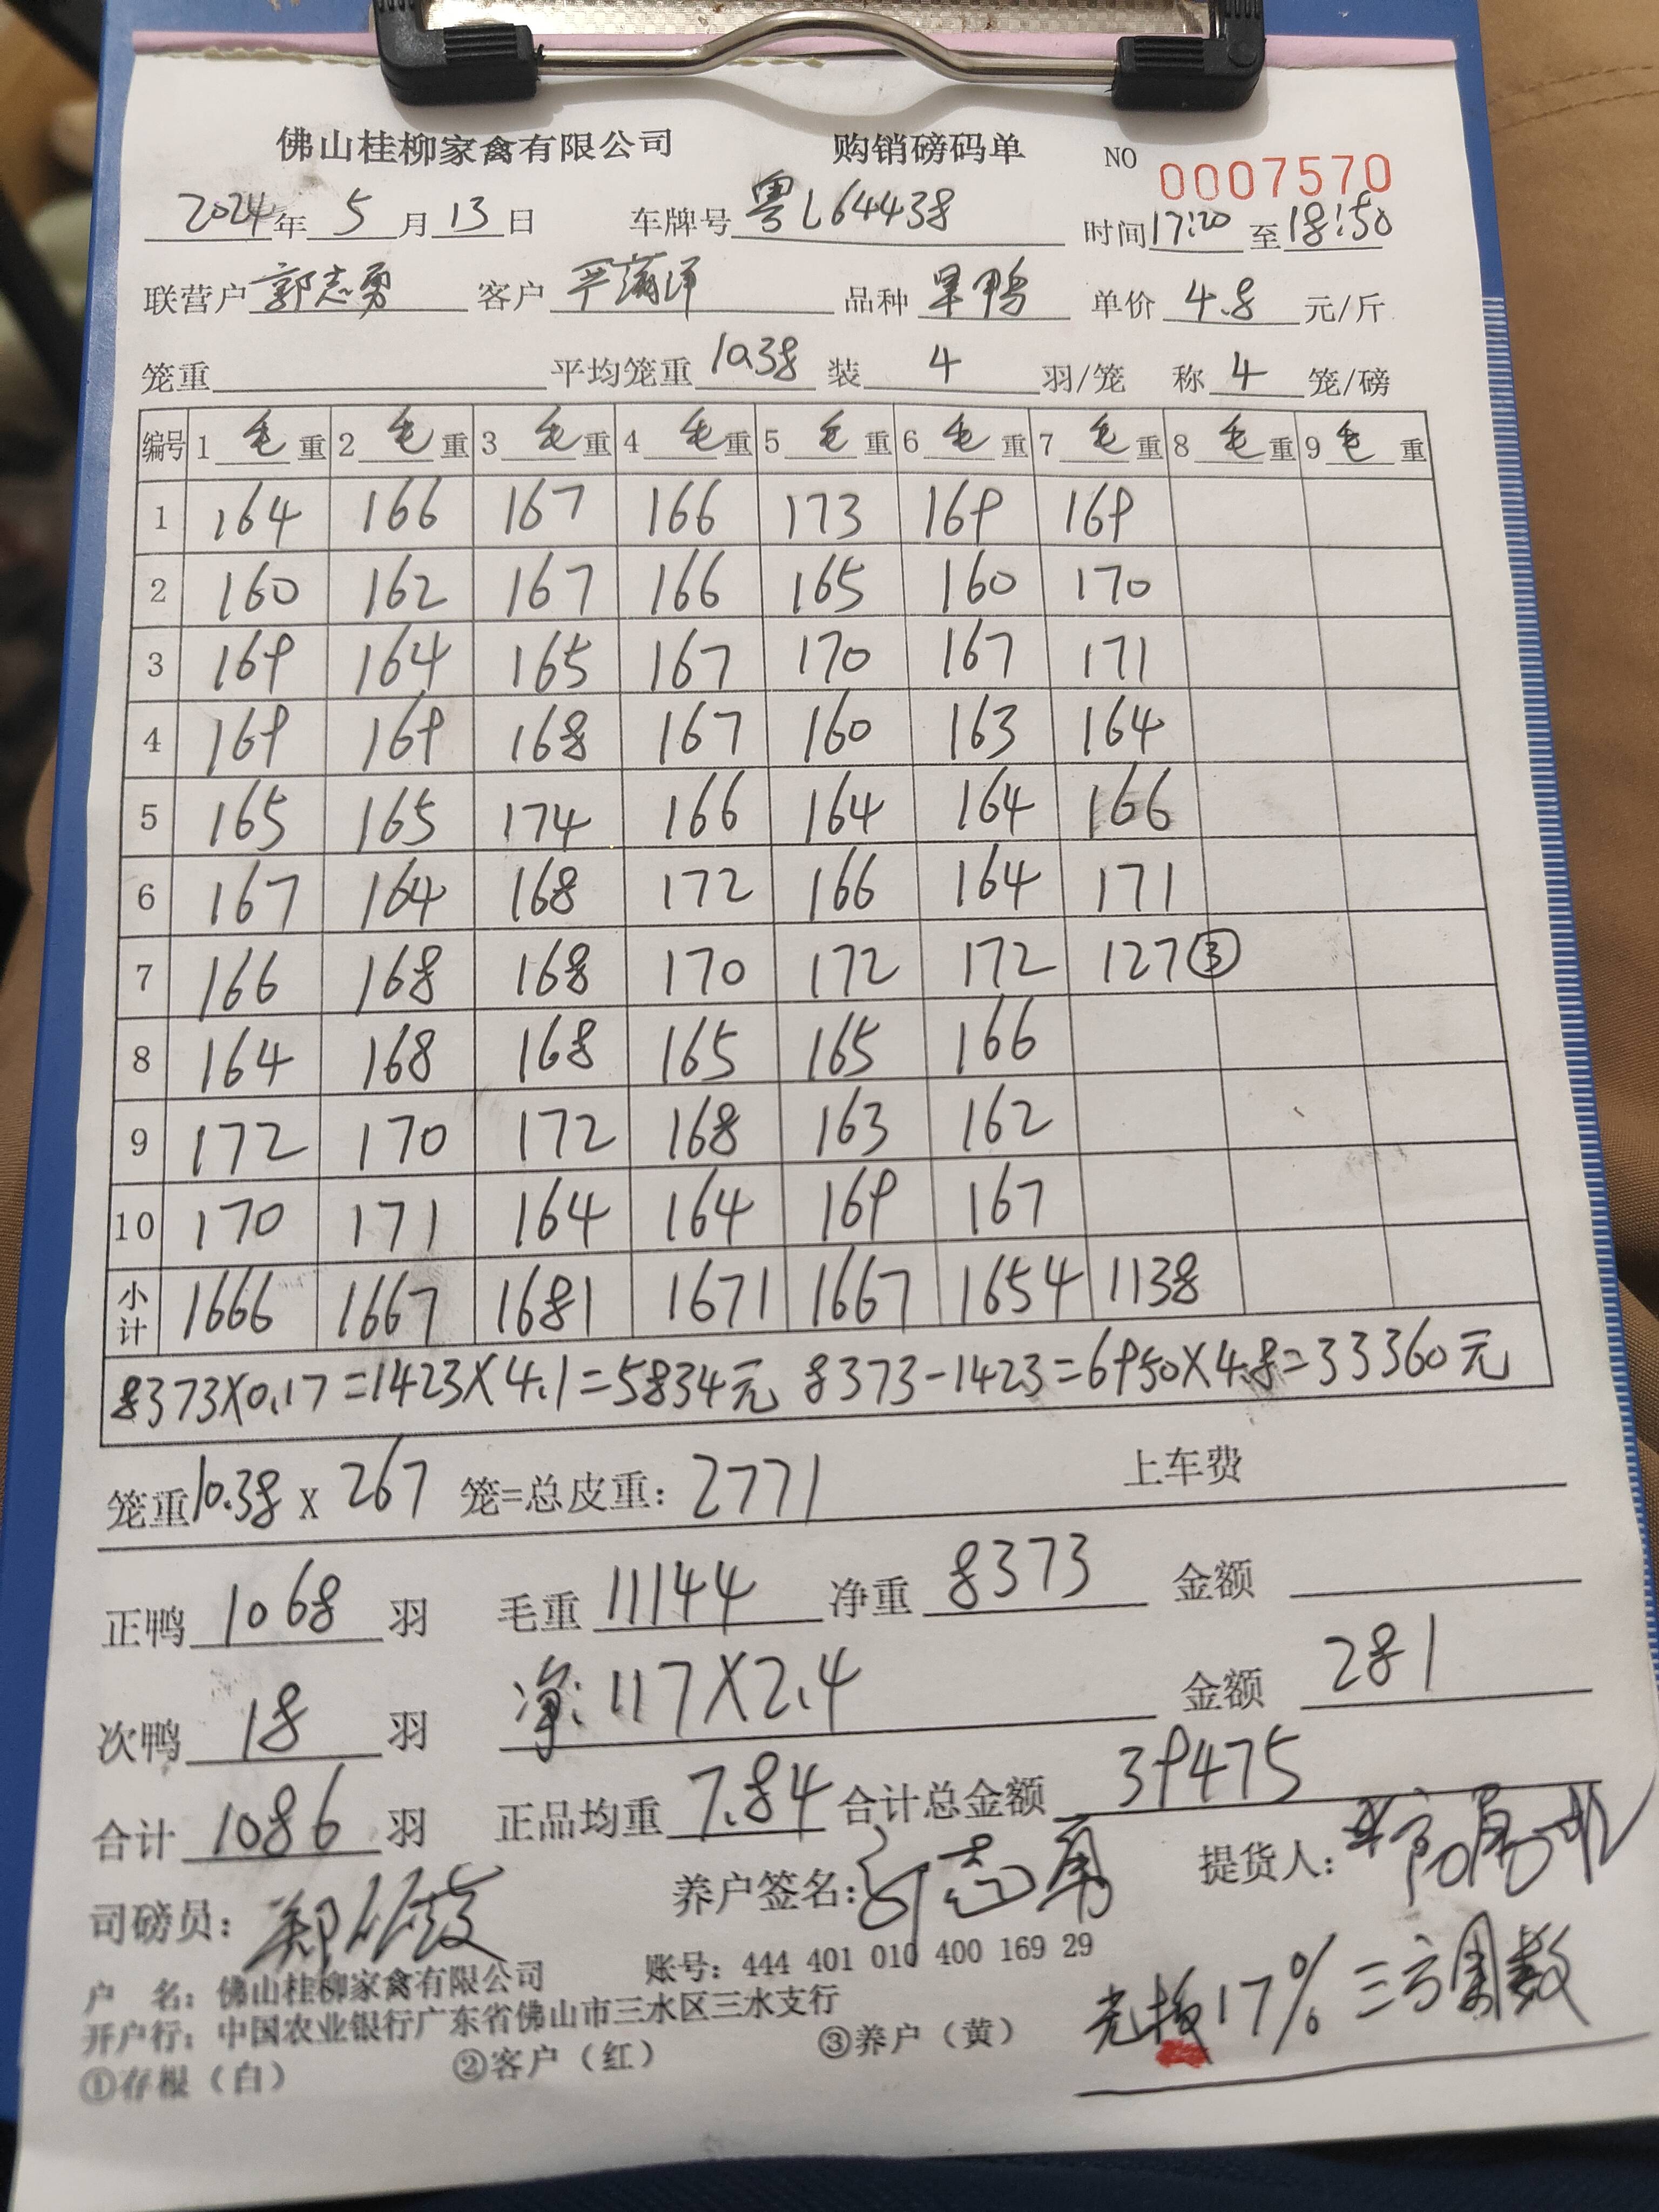 佛山桂柳家禽有限公司 购销磅码单 NO 0007570
2024年 5 月 13 日 车牌号 粤L64438 时间 17:20 至 18:50
联营户 郭志勇 客户 品种 旱鸭 单价 4.8 元/斤
笼重 平均笼重 10.38 装 4 羽/笼 称 4 笼/磅
编号 1 毛 重 2 毛 重 3 毛 重 4 毛 重 5 毛 重 6 毛 重 7 毛 重 8 毛 重 9 毛 重
1 164 166 167 166 173 169 169
2 160 162 167 166 165 160 170
3 169 164 165 167 170 167 171
4 169 169 168 167 160 163 164
5 165 165 174 166 164 164 166
6 167 164 168 172 166 164 171
7 166 168 168 170 172 172 127③
8 164 168 168 165 165 166
9 172 170 172 168 163 162
10 170 171 164 164 169 167
小计 1666 1667 1681 1671 1667 1654 1138
8373X0.17=1423X4.1=5834元 8373-1423=6950X4.8=33360元
笼重 10.38 x 267 笼=总皮重: 2771 上车费
正鸭 1068 羽 毛重 11144 净重 8373 金额
次鸭 18 羽 净: 117X2.4 金额 281
合计 1086 羽 正品均重 7.84 合计总金额 39475
司磅员: 养户签名: 郭志勇 提货人:
户 名: 佛山桂柳家禽有限公司 账号: 444 401 010 400 169 29
开户行: 中国农业银行广东省佛山市三水区三水支行
17% 三方
①存根（白） ②客户（红） ③养户（黄）